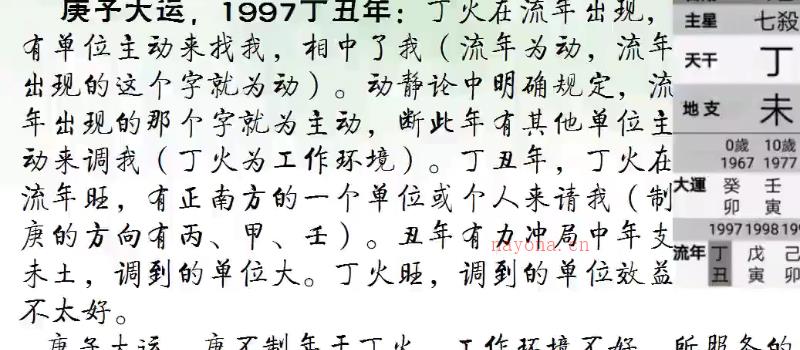 庚子大运，1997丁丑年：丁火在流年出现，
有单位主动来找我，相中了我（流年为动，流年
出现的这个字就为动）。动静论中明确规定，流
年出现的那个字就为主动，断此年有其他单位主
动来调我（丁火为工作环境）。丁丑年，丁火在
流年旺，有正南方的一个单位或个人来请我（制
庚的方向有丙、甲、壬）。丑年有力冲局中年支
未土，调到的单位大。丁火旺，调到的单位效益
不太好。
主星 七殺
天干 丁
地支 未
0歲 10歲
1967 1977
大運 癸 壬
卯 寅
1997 1998 199
流年 丁 戊 己
丑 寅 卯
nayona.cn